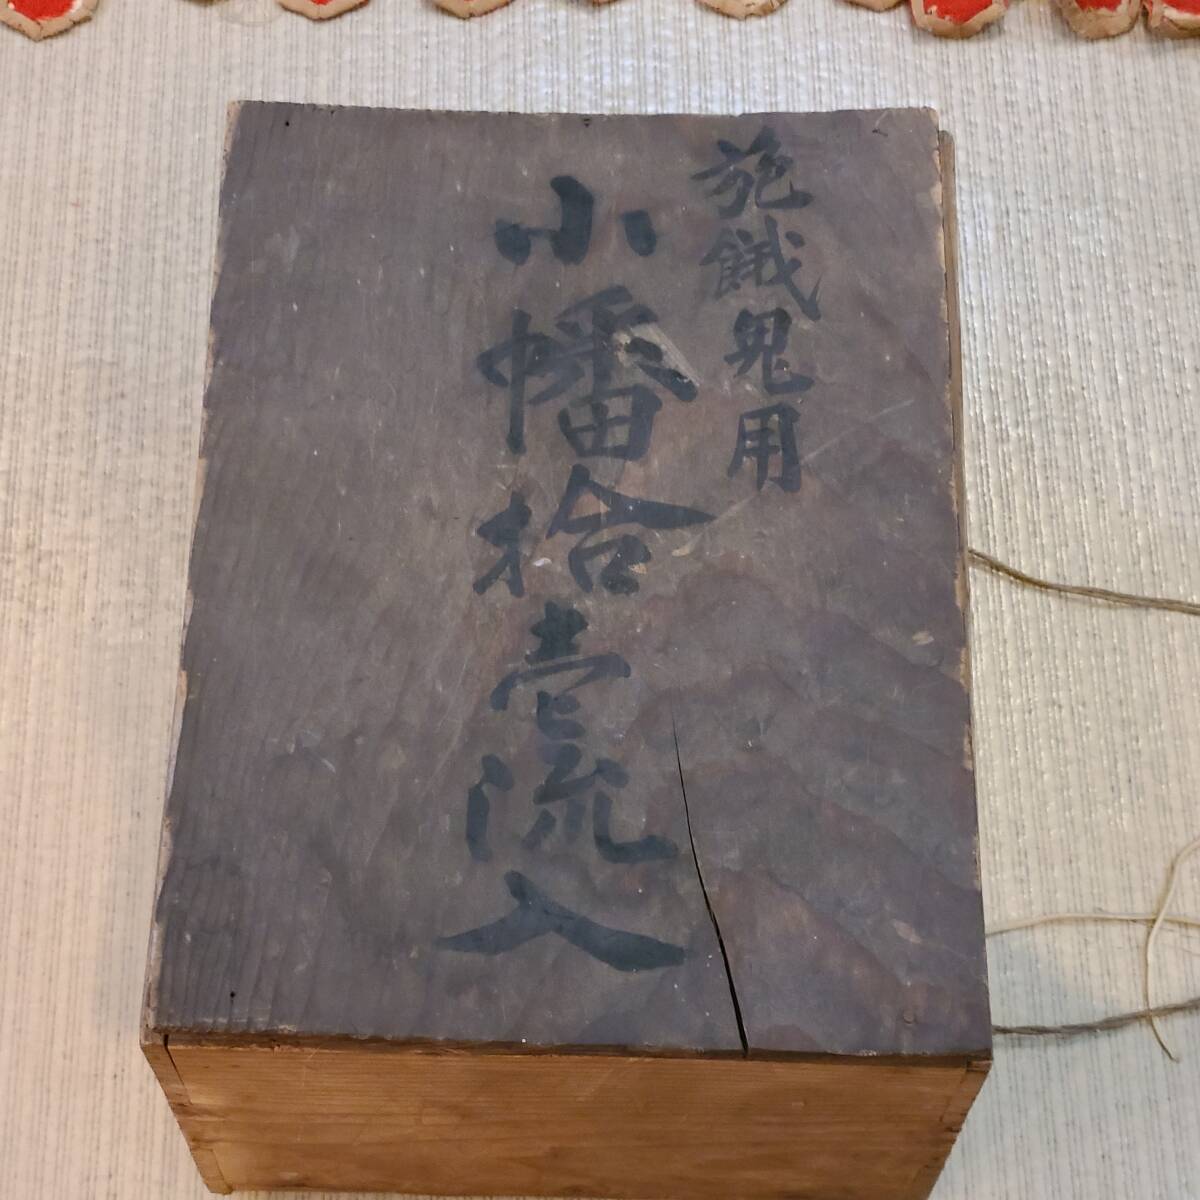 施餓鬼用
小幡拾壱流入